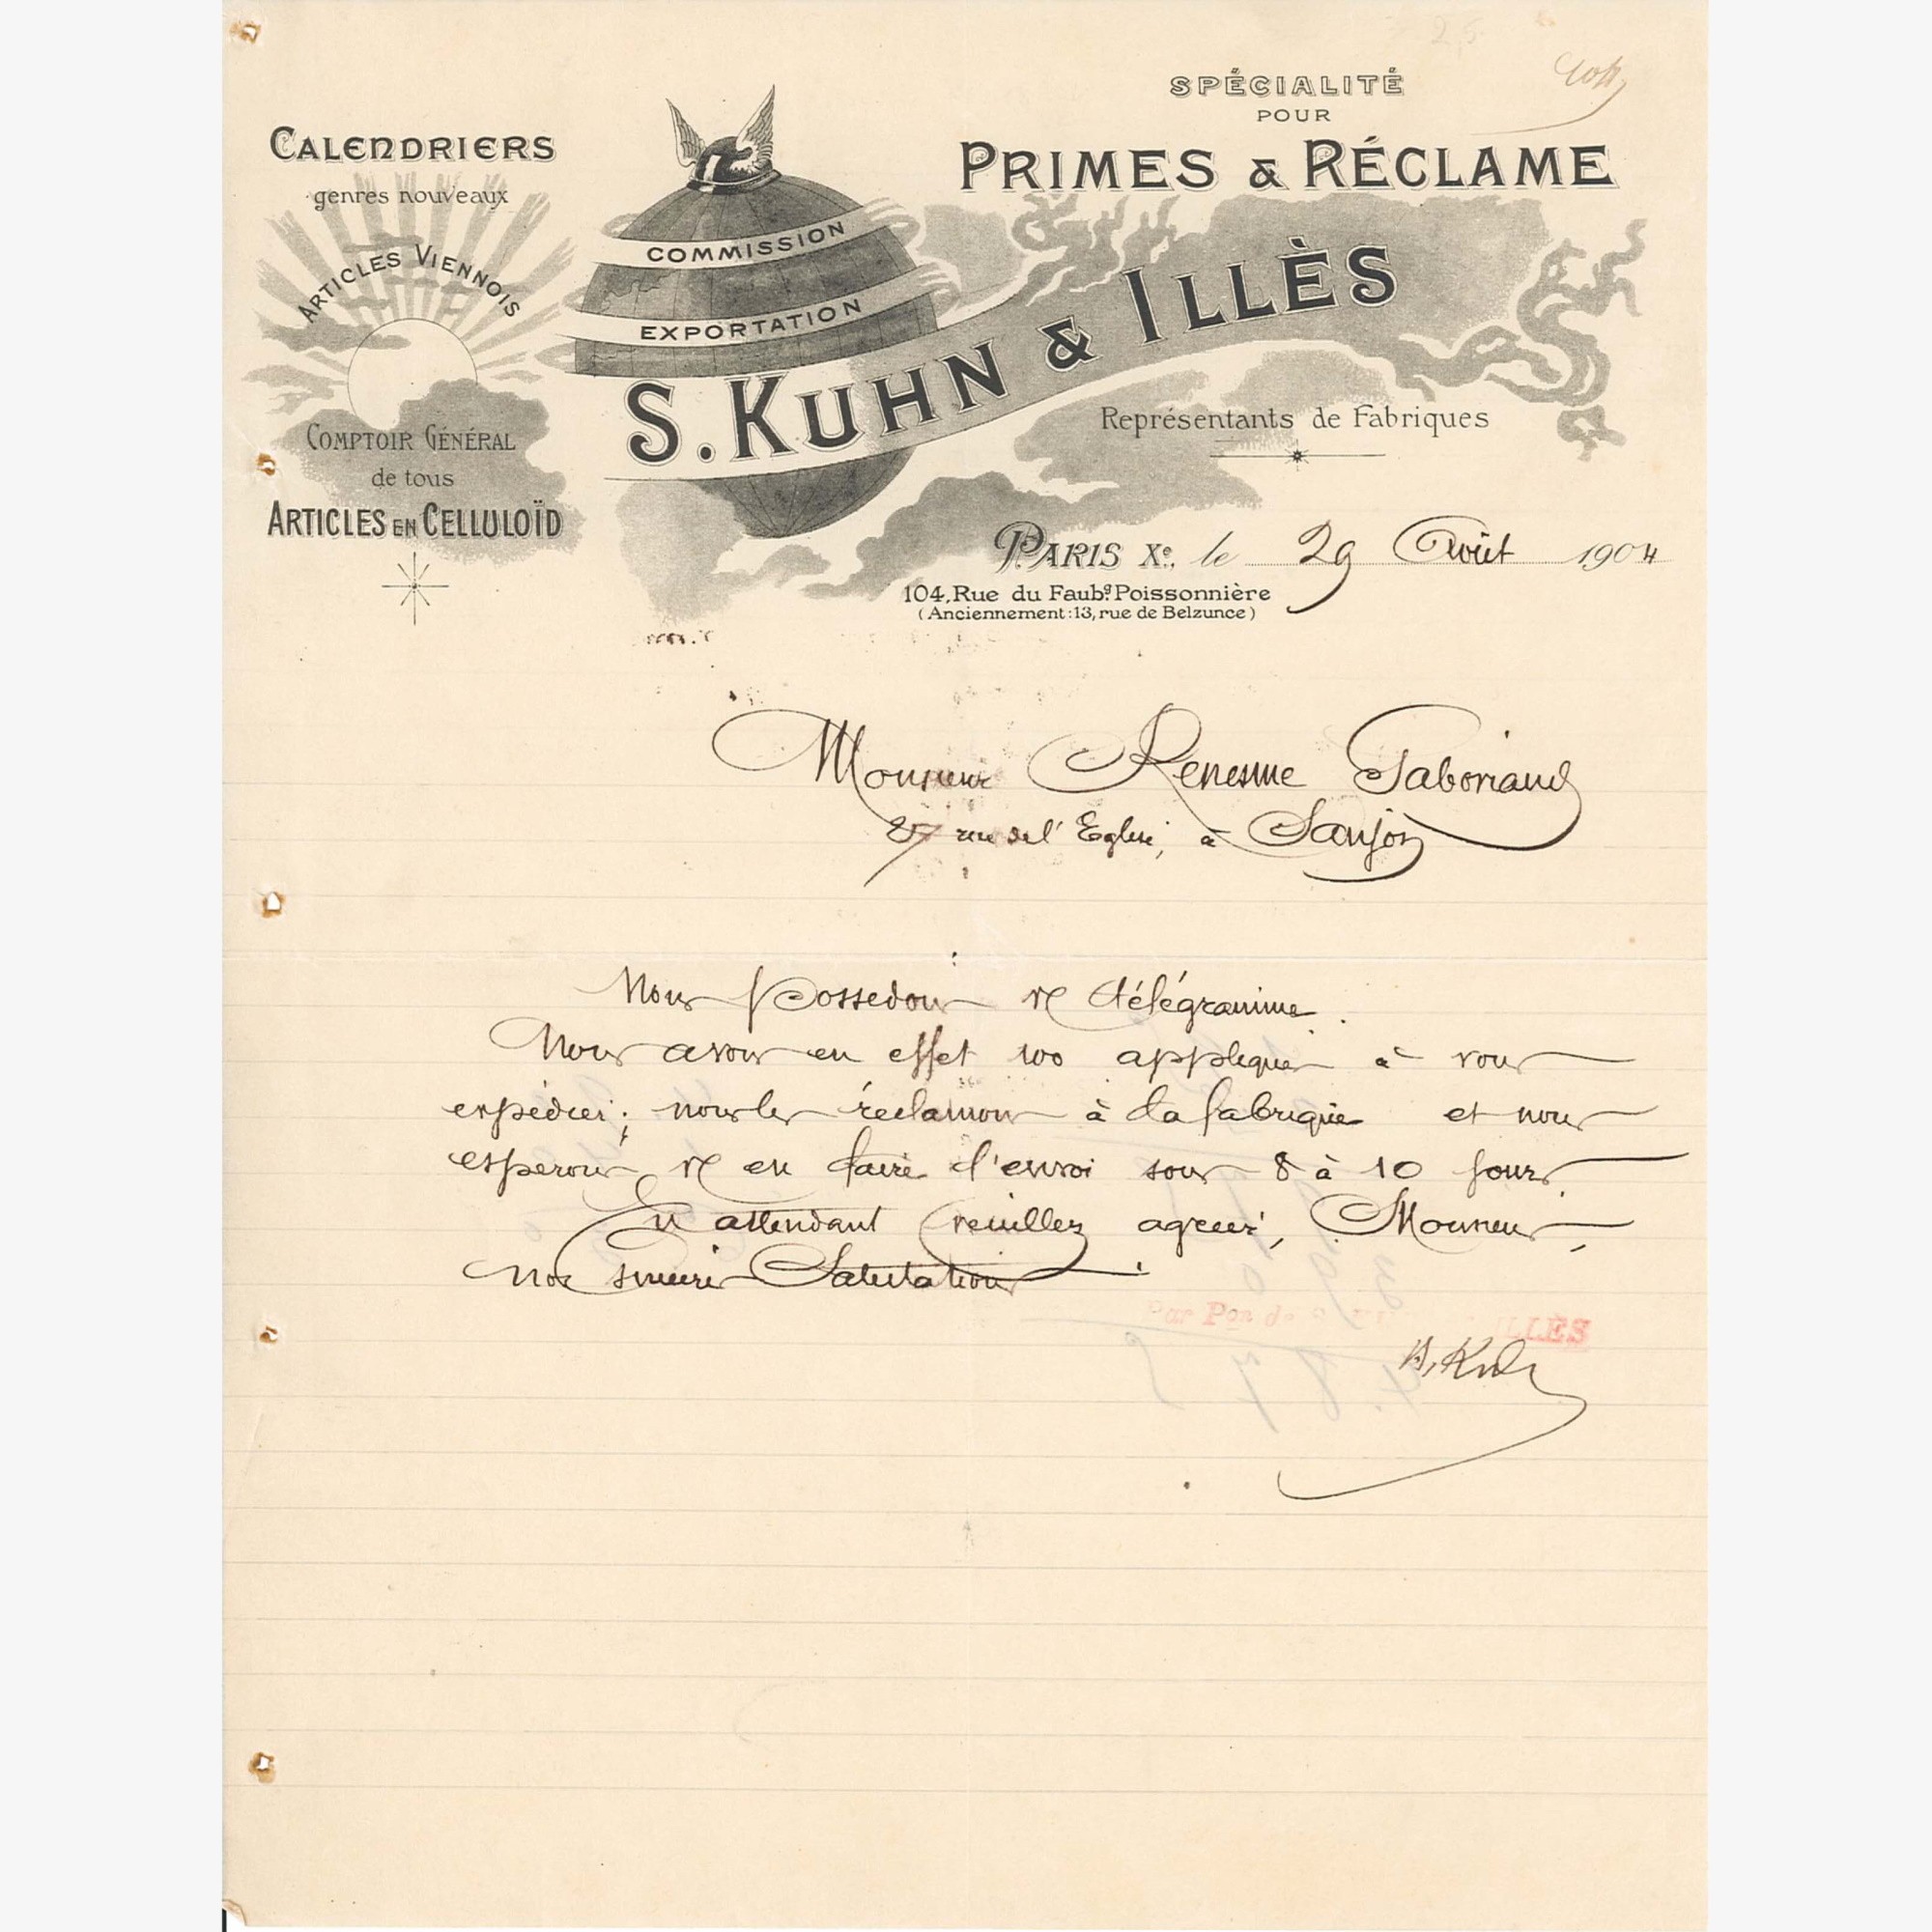 CALENDRIERS
genres nouveaux
ARTICLES VIENNOIS
COMPTOIR GÉNÉRAL
de tous
ARTICLES EN CELLULOÏD
COMMISSION
EXPORTATION
S. KUHN & ILLÈS
SPÉCIALITÉ
POUR
PRIMES & RÉCLAME
Représentants de Fabriques
PARIS Xe, le 29 Août 1904
104, Rue du Faubg Poissonnière
(Anciennement: 13, rue de Belzunce)
Monsieur Renesme Gaboriaud
27 rue de l'Eglise, à Saujon
Nous possedons télégramme.
Nous avons en effet 100 appliques à vous
expédier; nous les réclamons à la fabrique et nous
esperons en faire l'envoi sous 8 à 10 jours.
En attendant veuillez agréer, Monsieur,
nos sincères Salutations.
Par Pon de ILLÈS